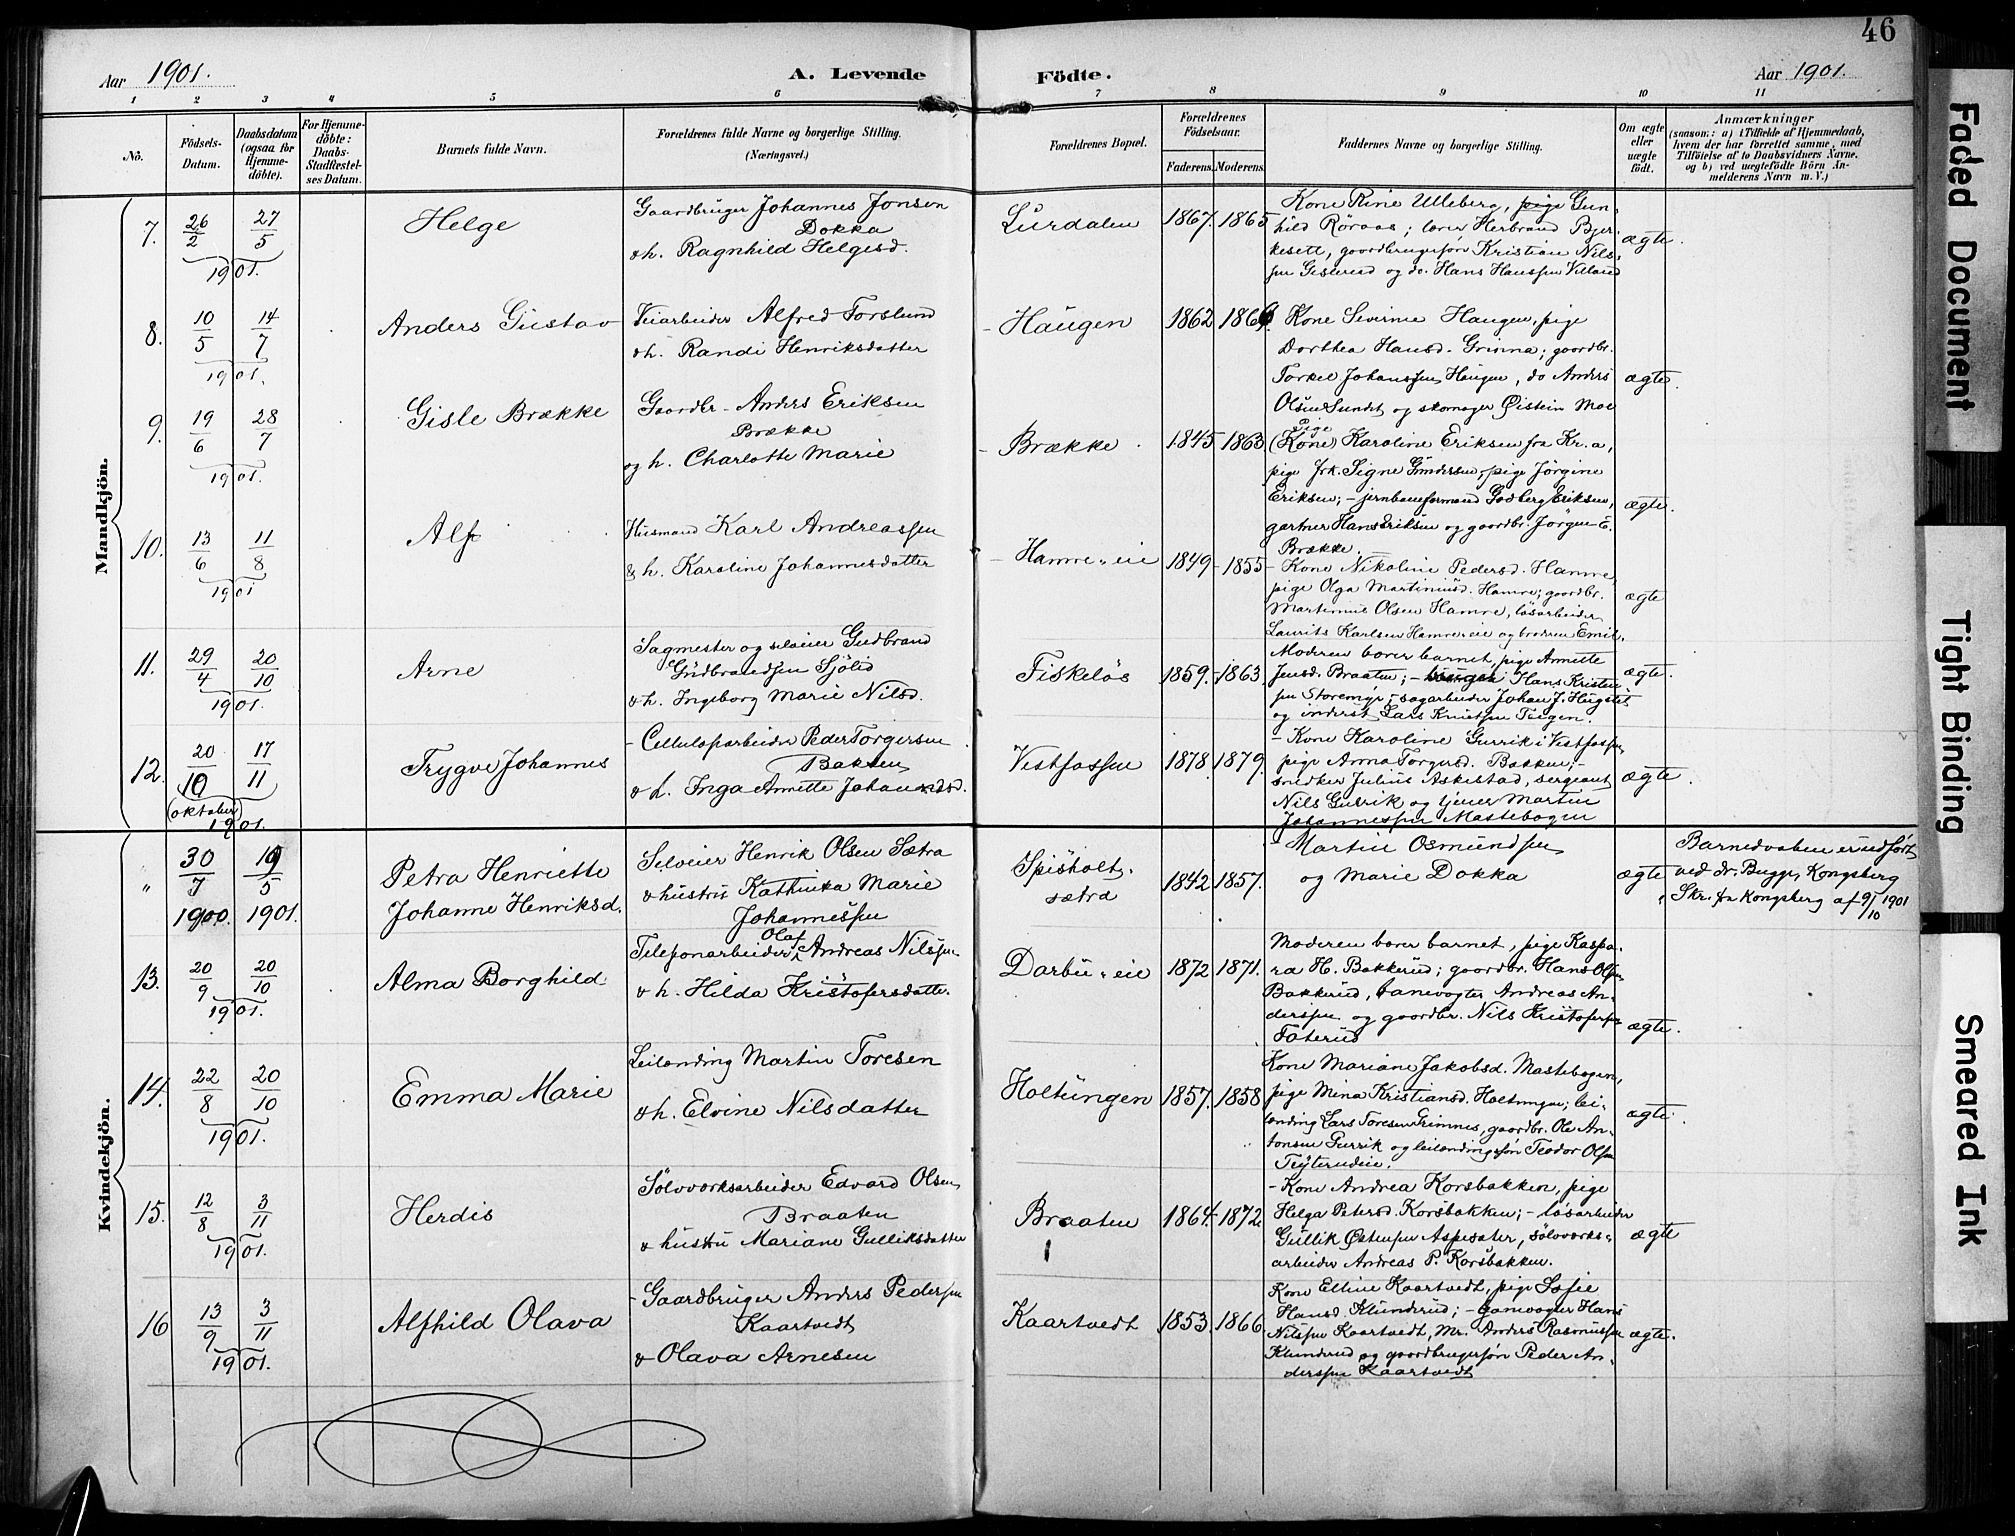 46
Aar 1901.
A. Levende
Födte.
Aar 1901.
1 2 3 4 5 6 7 8 9 10 11
No.
Födsels-Datum.
Daabsdatum (ogsaa for Hjemme-döbte).
For Hjemme-döbte: Daabs-Stadfæstel-ses Datum.
Barnets fulde Navn.
Forældrenes fulde Navne og borgerlige Stilling. (Næringsvei.)
Forældrenes Bopæl.
Forældrenes Födselsaar.
Faderens. Moderens.
Faddernes Navne og borgerlige Stilling.
Om ægte eller uægte födt.
Anmærkninger
(saasom: a) i Tilfælde af Hjemmedaab,
hvem der har forrettet samme, med
Tilföielse af to Daabsvidners Navne.
og b) ved uægtefödte Börn An-
melderens Navn m. V.)
Mandkjön.
7. 26/2 27/5 1901.
Helge
Gaardbruger Johannes Jonsen
Dokka
& h. Ragnhild Helgesd.
Lurdalen 1867. 1865
Kone Rine Ulleberg, pige Gun-
hild Röraas; lærer Herbrand Bjer-
kesett, gaardbrugersön Kristian Nils-
sen Gislerud og do. Hans Hanssen Villand
ægte.
8. 10/5 14/7 1901.
Anders Gustav
Veiarbeider Alfred Forslund
& h. Randi Henriksdatter
Haugen 1862
Kone Severine Haugen, pige
Dorthea Hansd. Grinna; gaardbr.
Torkel Johanssen Haugen, do Anders
Olsen Sundet og skomager Øistein Moe
ægte.
9. 19/6 28/7 1901.
Gisle Brække
Gaardbr. Anders Eriksen
Brække
og h. Charlotte Marie
Brække 1845 1863.
Pige
(Kone) Karoline Eriksen fra Kr.a,
pige frk. Signe Gundersen, pige Jörgine
Eriksen; - jernbaneformand Godberg Eriksen,
gartner Hans Eriksen og gaardbr. Jörgen E.
Brække.
ægte.
10. 13/6 11/8 1901
Alf
Husmand Karl Andreassen
& h. Karoline Johannesdatter
Hamre-eie 1849 - 1855
- Kone Nikoline Pedersd. Hamre,
pige Olga Martinusd. Hamre; gaardbr.
Martinius Olsen Hamre, lösarbeider
Laurits Karlsen Hamre eie og broderen Emil.
ægte
11. 29/4 20/10 1901.
Arne
Sagmester og selveier Gudbrand
Gudbrandsen Sjölid
& h. Ingeborg Marie Nilsd.
Fiskelös 1859. - 1863.
Moderen bærer barnet, pige Annette
Jensd. Braaten; - Hans Kristen
sen Storemyr, sagarbeider Johan J.
og inderst Lars Knutsen Teigen.
ægte.
12. 20/10 17/11 (oktober) 1901.
Trygve Johannes
- Cellulosarbeider Peder Torgersen
Bakken
& h. Inga Annette Johannesd.
Vestfossen 1878. 1879.
- Kone Karoline Gurrik i Vestfossen,
pige Anna Torgersd. Bakken; -
snedker Julius Askestad, sergeant
Nils Gurrik og tjener Martin
Johannessen Mastebogen
ægte.
Kvindekjön.
" 30/7 1900. 5 1901.
Petra Henriette
Johanne Henriksd.
Selveier Henrik Olsen Sætra
& hustru Kathinka Marie
Johannessen
Spisholt-
sætra
1842 1857.
Martin Osmundsen
og Marie Dokka
ægte
Barnedaaben er udfört
ved dr. Bugge, Kongsberg
Skr. fra Kongsberg af 9/10 1901
13. 20/9 20/10 1901.
Alma Borghild
Telefonarbeider Olaf Andreas Nilssen
& h. Hilda Kristofersdatter.
Darbu-eie 1872 1871.
Moderen bærer barnet, pige Kaspa-
ra H. Bakkerud; gaardbr. Hans Olsen
Bakkerud, banevogter Andreas An-
derssen og gaardbr. Nils Kristofersen
Foterud
ægte.
14. 22/8 20/10 1901.
Emma Marie
Leilænding Martin Toresen
& h. Elvine Nilsdatter
Holtungen 1857. 1858
Kone Mariane Jakobsd. Mastebogen,
pige Mina Kristiansd. Holtungen; lei-
lænding Lars Toresen Grimnes, gaardbr. Ole An-
tonsen Gurrik og leilændingsön Teodor Olsen
Teyterudeie.
ægte.
15. 12/8 3/11 1901.
Herdis
Sölvværksarbeider Edvard Olsen
Braaten
& hustru Mariane Gulliksdatter
Braaten 1864. 1872
- Kone Andrea Korsbakken, pige
Helga Petersd. Korsbakken; - lösarbeider
Gullik Østensen Aspesæter, sölvværks-
arbeider Andreas P. Korsbakken.
ægte
16 13/9 3/11 1901.
Alfhild Olava
- Gaardbruger Anders Pedersen
Kaartvedt
& Olava Arnesen
Kaartvedt 1853. 1866.
Kone Elline Kaartvedt, pige Sofie
Hansd. Klunderud; - banevogter Hans
Nilssen Kaartvedt, Mr. Anders Rasmussen
Klunderud og gaardbrugersön Peder An-
derssen Kaartvedt
ægte.
Faded Document
Tight Binding
Smeared Ink